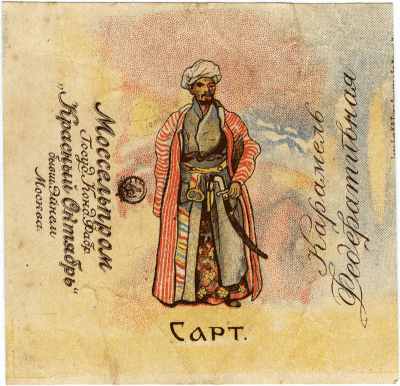 Моссельпром
Госуд. Конд. Фабр.
„Красный Октябрь"
бывш. Эйнем
Москва.
Карамель
Федеративная
Сарт.